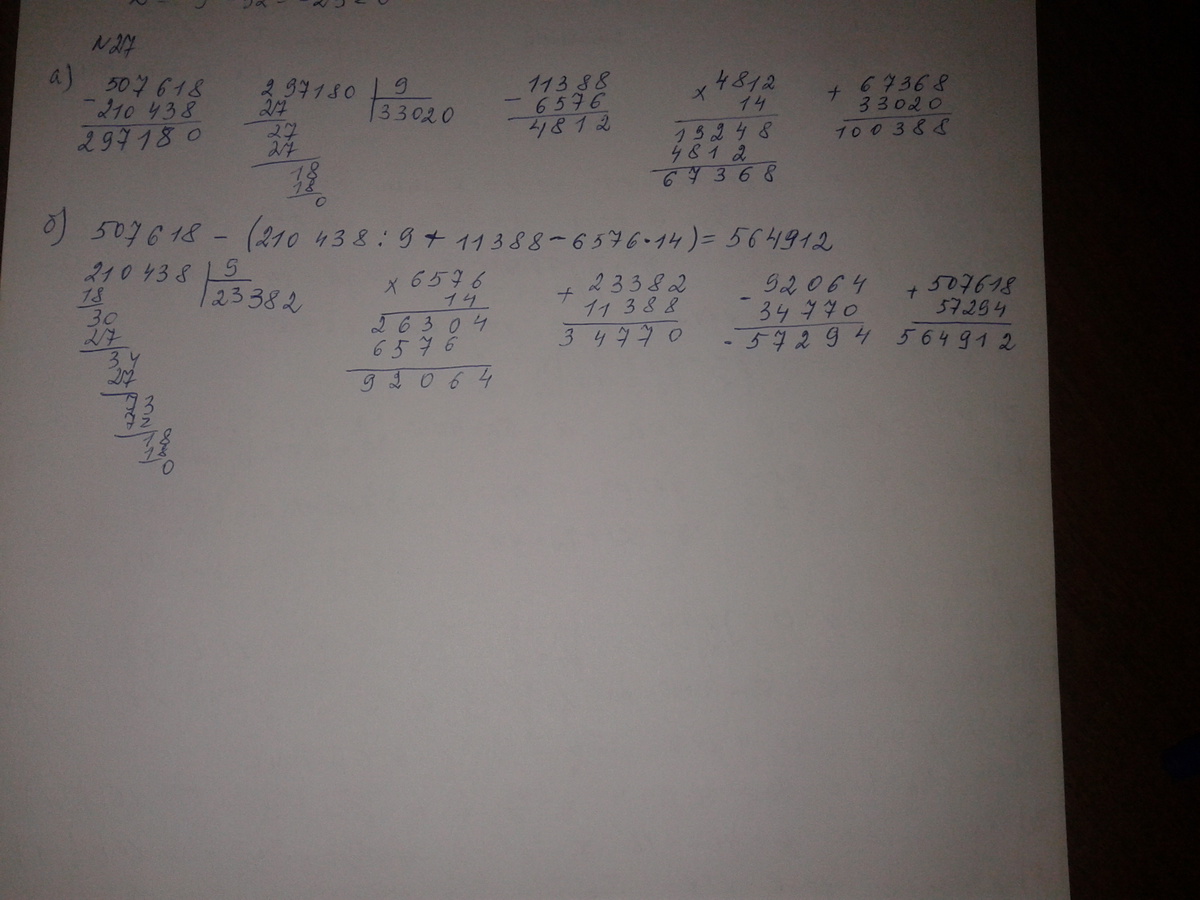 N27
а)
507618
- 210 438
297180
297180 | 9
27 33020
27
27
18
18
0
- 11388
6576
4812
x 4812
14
19248
4812
67368
+ 67368
33020
100388
б) 507618 - (210 438 : 9 + 11388 - 6576 · 14) = 564912
210 438 | 9
18 23382
30
27
34
27
73
72
18
18
0
x 6576
14
26304
6576
92064
+ 23382
11388
34770
- 92064
34770
- 57294
+ 507618
57294
564912